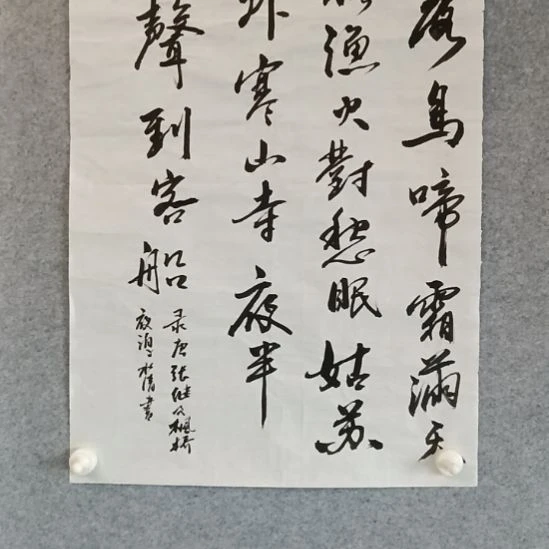 落烏啼霜滿天
漁火對愁眠姑苏
外寒山寺夜半
聲到客船
录唐张继枫桥
夜泊